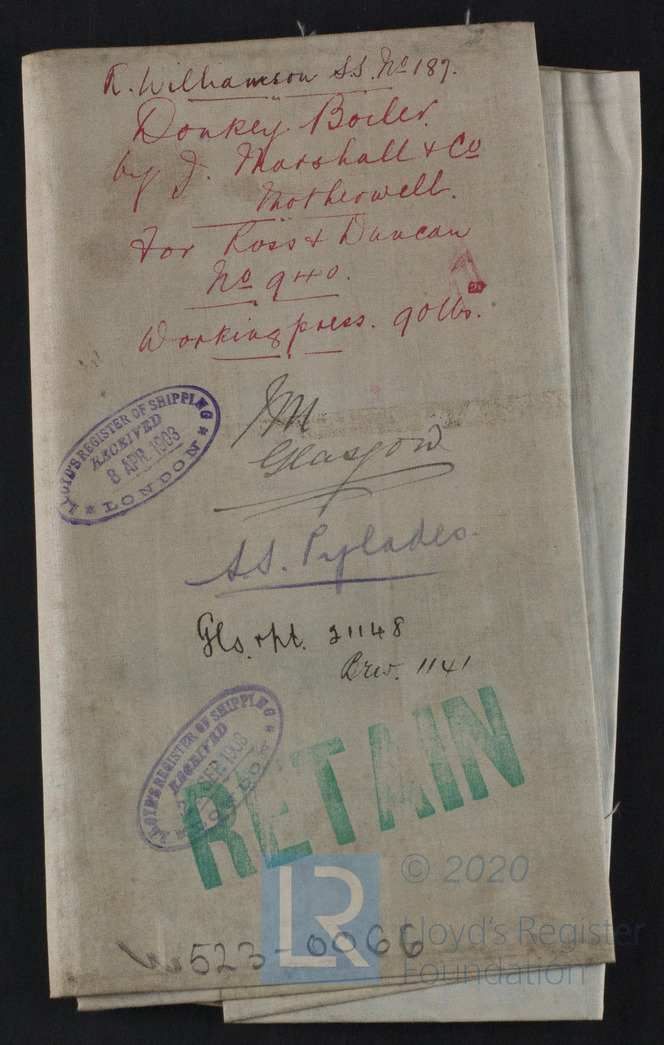 R. Williamson S.S. No 187.
Donkey Boiler.
by J. Marshall & Co
Motherwell.
For Ross & Duncan
No 940.
Working press. 90 lbs.
LLOYD'S REGISTER OF SHIPPING
RECEIVED
8 APR. 1903
LONDON
JM
Glasgow
S.S. Pylades.
Gls. rpt. 21148
Brw. 1141
LLOYD'S REGISTER OF SHIPPING
RECEIVED
SEP 1903
LONDON
RETAIN
LR
© 2020
Lloyd's Register
Foundation
W523-0066